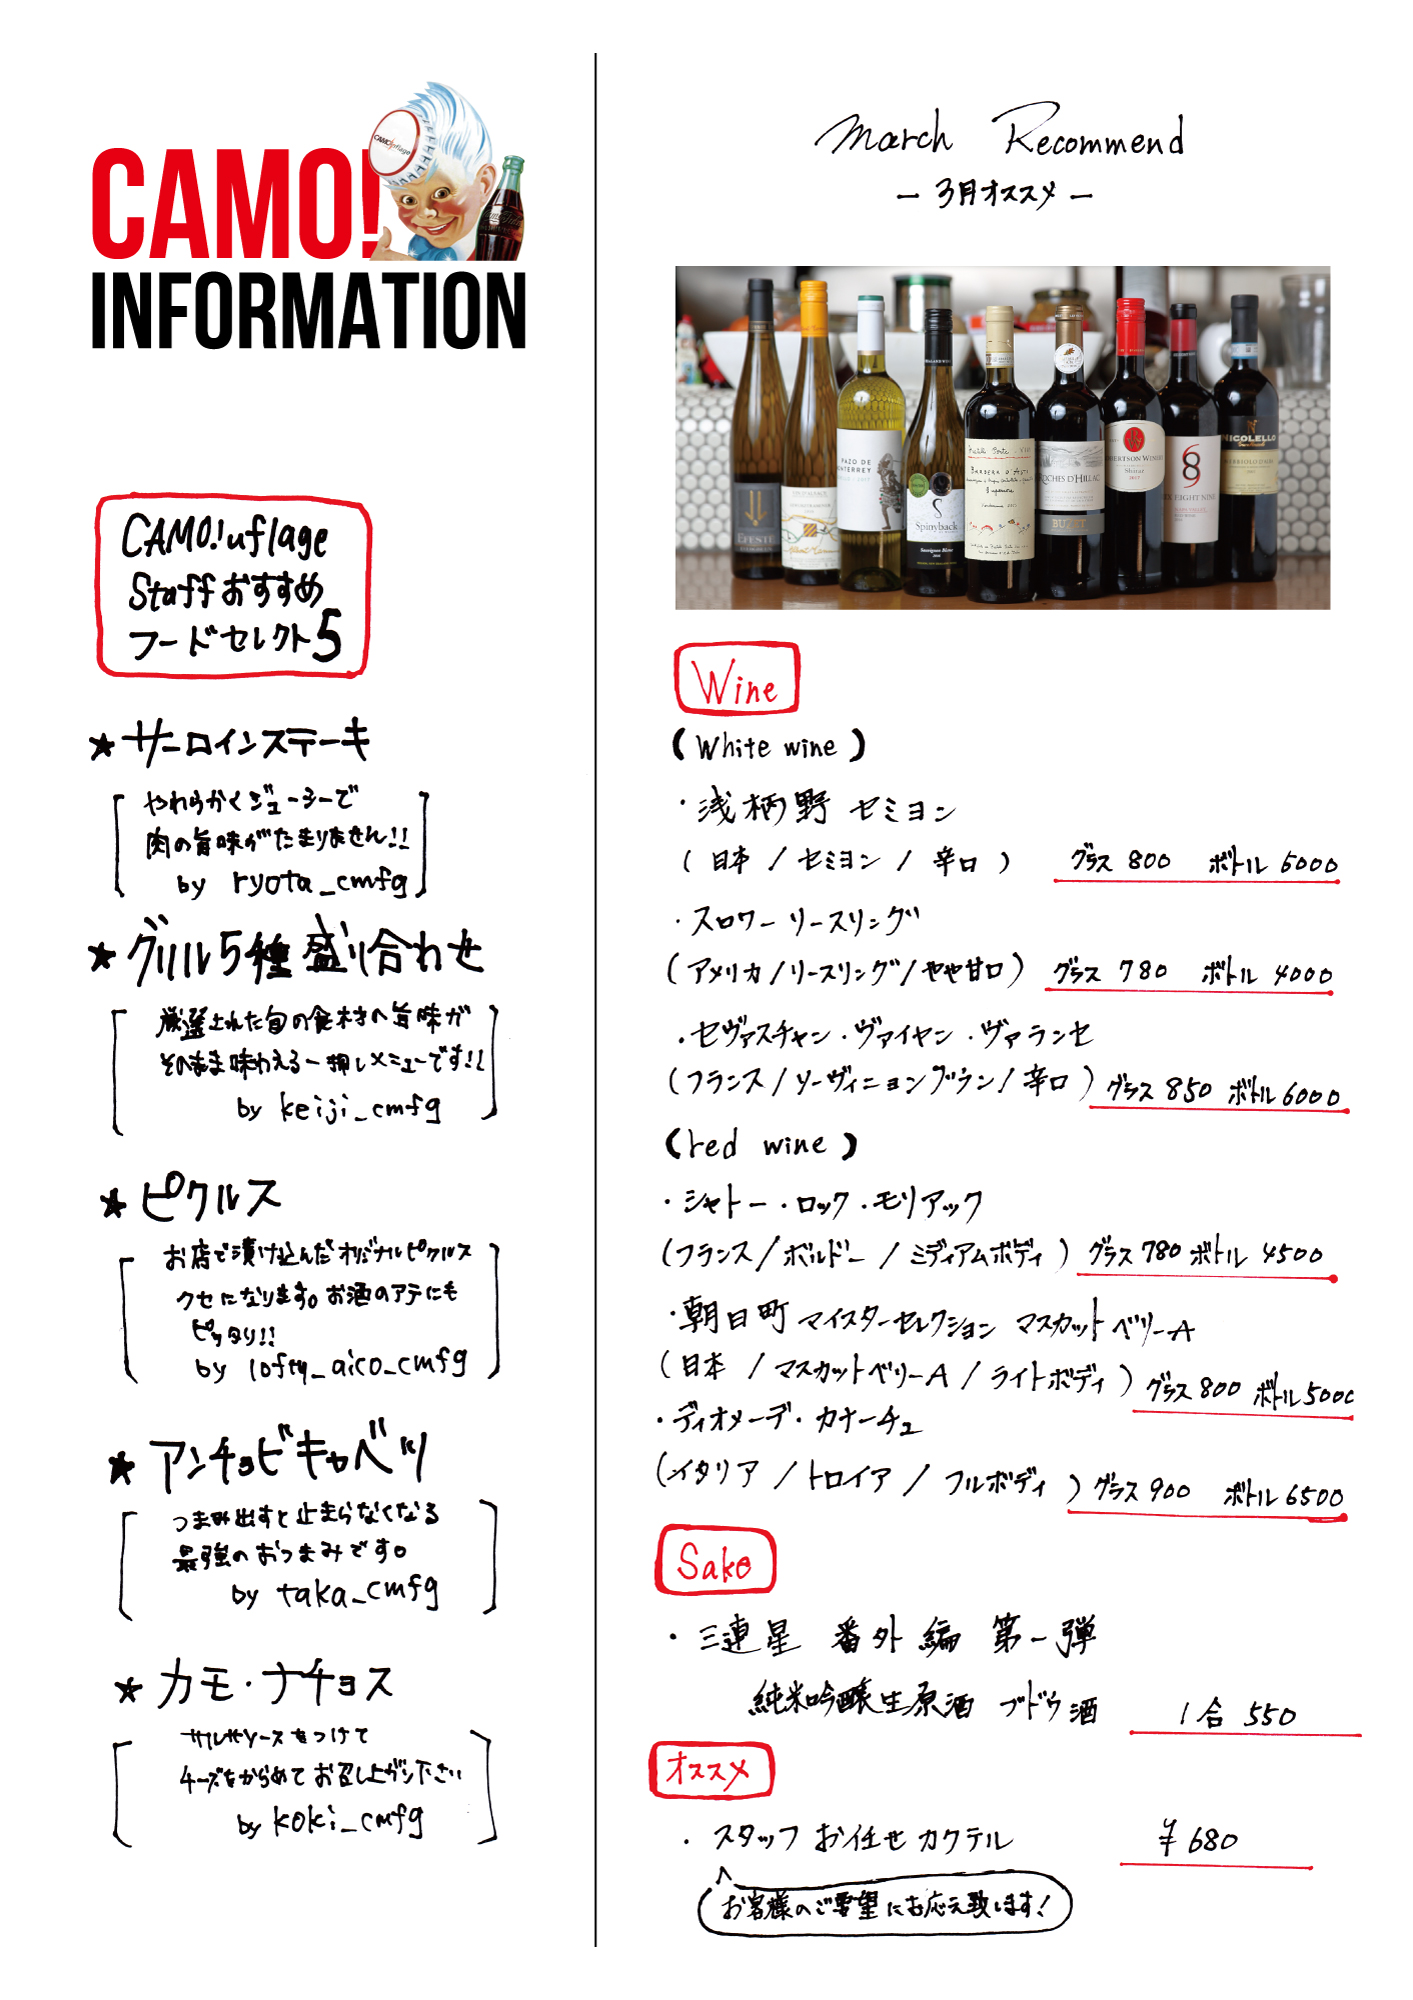 CAMO!
INFORMATION
CAMO!uflage
Staffおすすめ
フードセレクト5
★サーロインステーキ
やわらかくジューシーで
肉の旨味がたまりません!!
by ryota_cmfg
★グリル5種盛り合わせ
厳選された旬の食材の旨味が
そのまま味わえる一押しメニューです!!
by keiji_cmfg
★ピクルス
お店で漬け込んだオリジナルピクルス
クセになります。お酒のアテにも
ピッタリ!!
by lofty_aico_cmfg
★アンチョビキャベツ
つまみ出すと止まらなくなる
最強のおつまみです。
by taka_cmfg
★カモ・ナチョス
サルサソースをつけて
チーズをからめてお召し上がり下さい
by koki_cmfg
March Recommend
ー3月オススメー
EFESTE
PAZO DE
MONTERREY
Spinyback
Sauvignon Blanc
BARBERA D'ASTI
Superiore
ROCHES D'HILLAC
BUZET
ROBERTSON WINERY
Shiraz
2017
SIX EIGHT NINE
NICOLELLO
NEBBIOLO D'ALBA
Wine
(White wine)
・浅柄野 セミヨン
(日本/セミヨン/辛口) グラス 800 ボトル 5000
・スロワー リースリング
(アメリカ/リースリング/やや甘口) グラス 780 ボトル 4000
・セヴァスチャン・ヴァイヤン・ヴァランセ
(フランス/ソーヴィニョンブラン/辛口) グラス 850 ボトル 6000
(red wine)
・シャトー・ロック・モリアック
(フランス/ボルドー/ミディアムボディ) グラス 780 ボトル 4500
・朝日町 マイスターセレクション マスカットベリーA
(日本/マスカットベリーA/ライトボディ) グラス 800 ボトル 5000
・ディオメーデ・カナーチュ
(イタリア/トロイア/フルボディ) グラス 900 ボトル 6500
Sake
・三連星 番外編 第一弾
純米吟醸生原酒 ブドウ酒 1合 550
オススメ
・スタッフお任せカクテル ¥680
お客様のご要望にお応え致します!